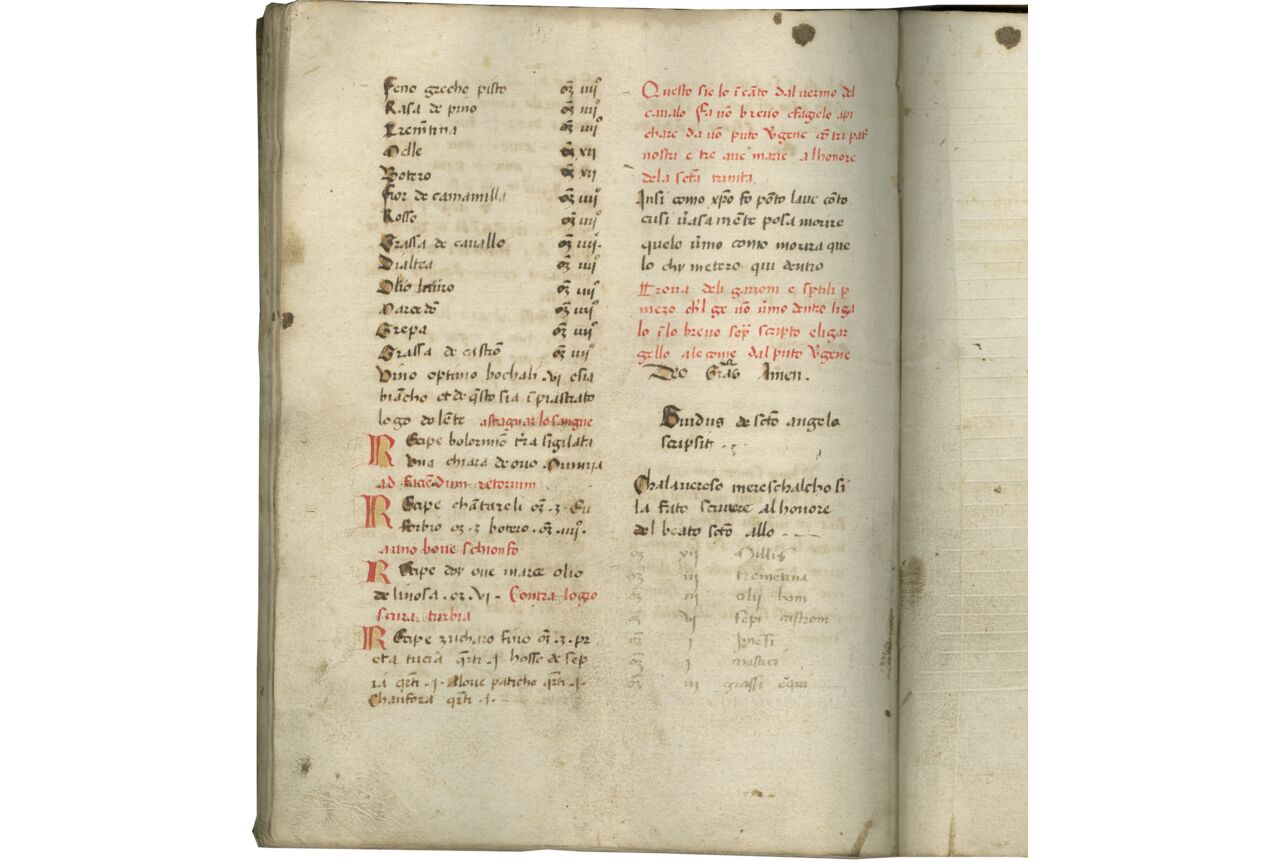 Feno grecho pisto oz iiijº
Rasa de pino oz iiijº
Trem̄tina oz iiijº
Melle oz xij
Botero oz xij
Fior de camamilla oz iiijº
Rosso oz iiijº
Grassa de cauallo oz iiijº
Dialtea oz iiijº
Olio laurino oz iiijº
oz iiijº
Grepa oz iiijº
Grassa de castrō oz iiijº
Vino optimo bochali .vi. e sia
biācho et de q̄sto sia ī piastrato
logo dolēte astagnar lo sangue
Recipe bolormino t̄ra sigilata
una chiara de ouo Mumia
ad faciēdum retorium
Recipe chātareli oz .3. Eu
forbio oz .3 botero .oz. iiijº.
a uno boue schionfo
Recipe doy oue marce olio
de linosa .oz. vi. Contra logio
scura turbia
Recipe zucharo fino oz .3. pr
eta tucia q̄rti .j. hosso de sep
ia q̄rti .j. Aloue paticho q̄rti .j.
Chāfora q̄rti .j.
Questo sie lo īcāto dal uermo del
caualo Fa nō breuo e fagielo api
chare da nō puto v̄gene cō tri pat̄
nostri e tre aue marie a lhonore
dela sctā trinita.
Insi como xp̄o fo pōto laue cōto
cusi ū asa mēte posa morire
quelo v̄mo como morira que
lo chy metero qui dentro
Troua deli garzoni e sp̄tili p̄
mezo ch̄l ge nō v̄mo dentro liga
lo ī lo breuo sop̄ scripto e ligar
gello ale come dal puto v̄gene
Deo Gr̄as Amen.
Guidus de sctō angelo
scripsit . . .
Chalauereso mereschalcho si
la fato scriuere al honore
del beato sctō allo . —
oz xij Mellis
oz iij trementina
oz iij olij boni
oz vj sepi castroni
oz j
oz j masticj
oz iij grassi equi